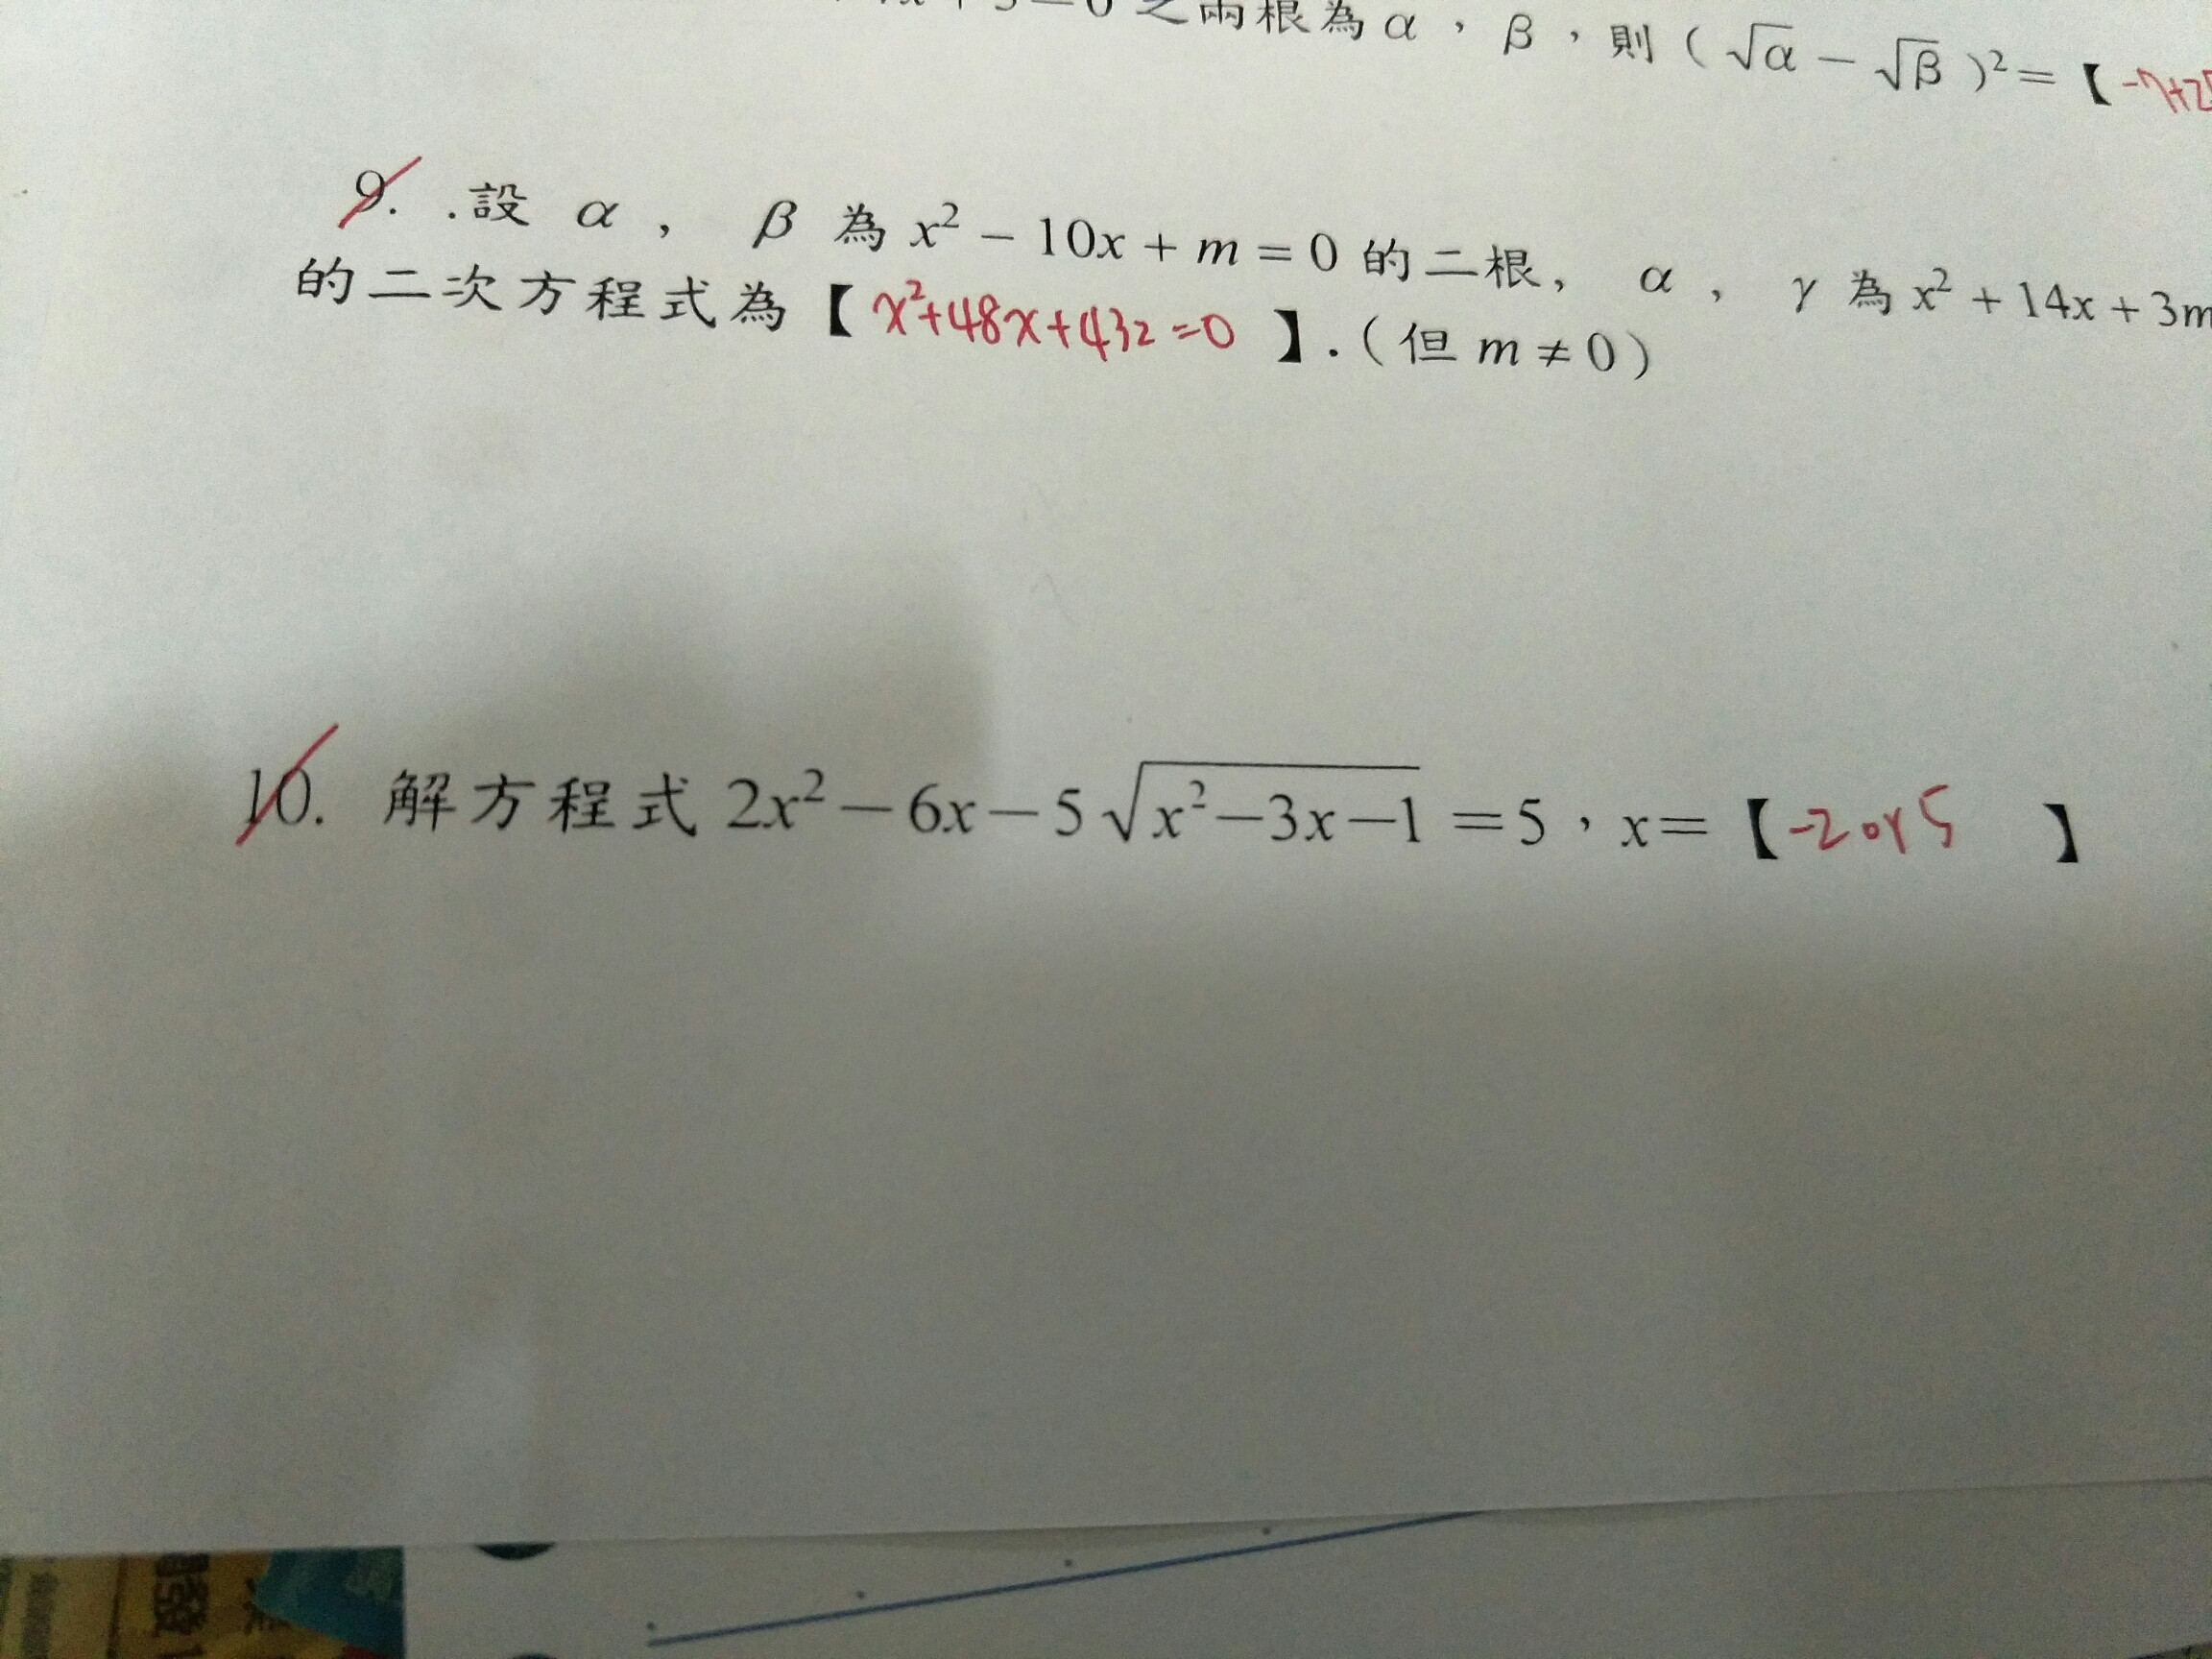 + 3 = 0 之兩根為 α , β , 則 ( √α − √β )² = 【 -7+2
9. .設 α , β 為 x² − 10x + m = 0 的二根, α , γ 為 x² + 14x + 3m
的二次方程式為【 x²+48x+432=0 】.(但 m ≠ 0)
10. 解方程式 2x² − 6x − 5√(x²−3x−1) = 5 , x=【 -2 or 5 】